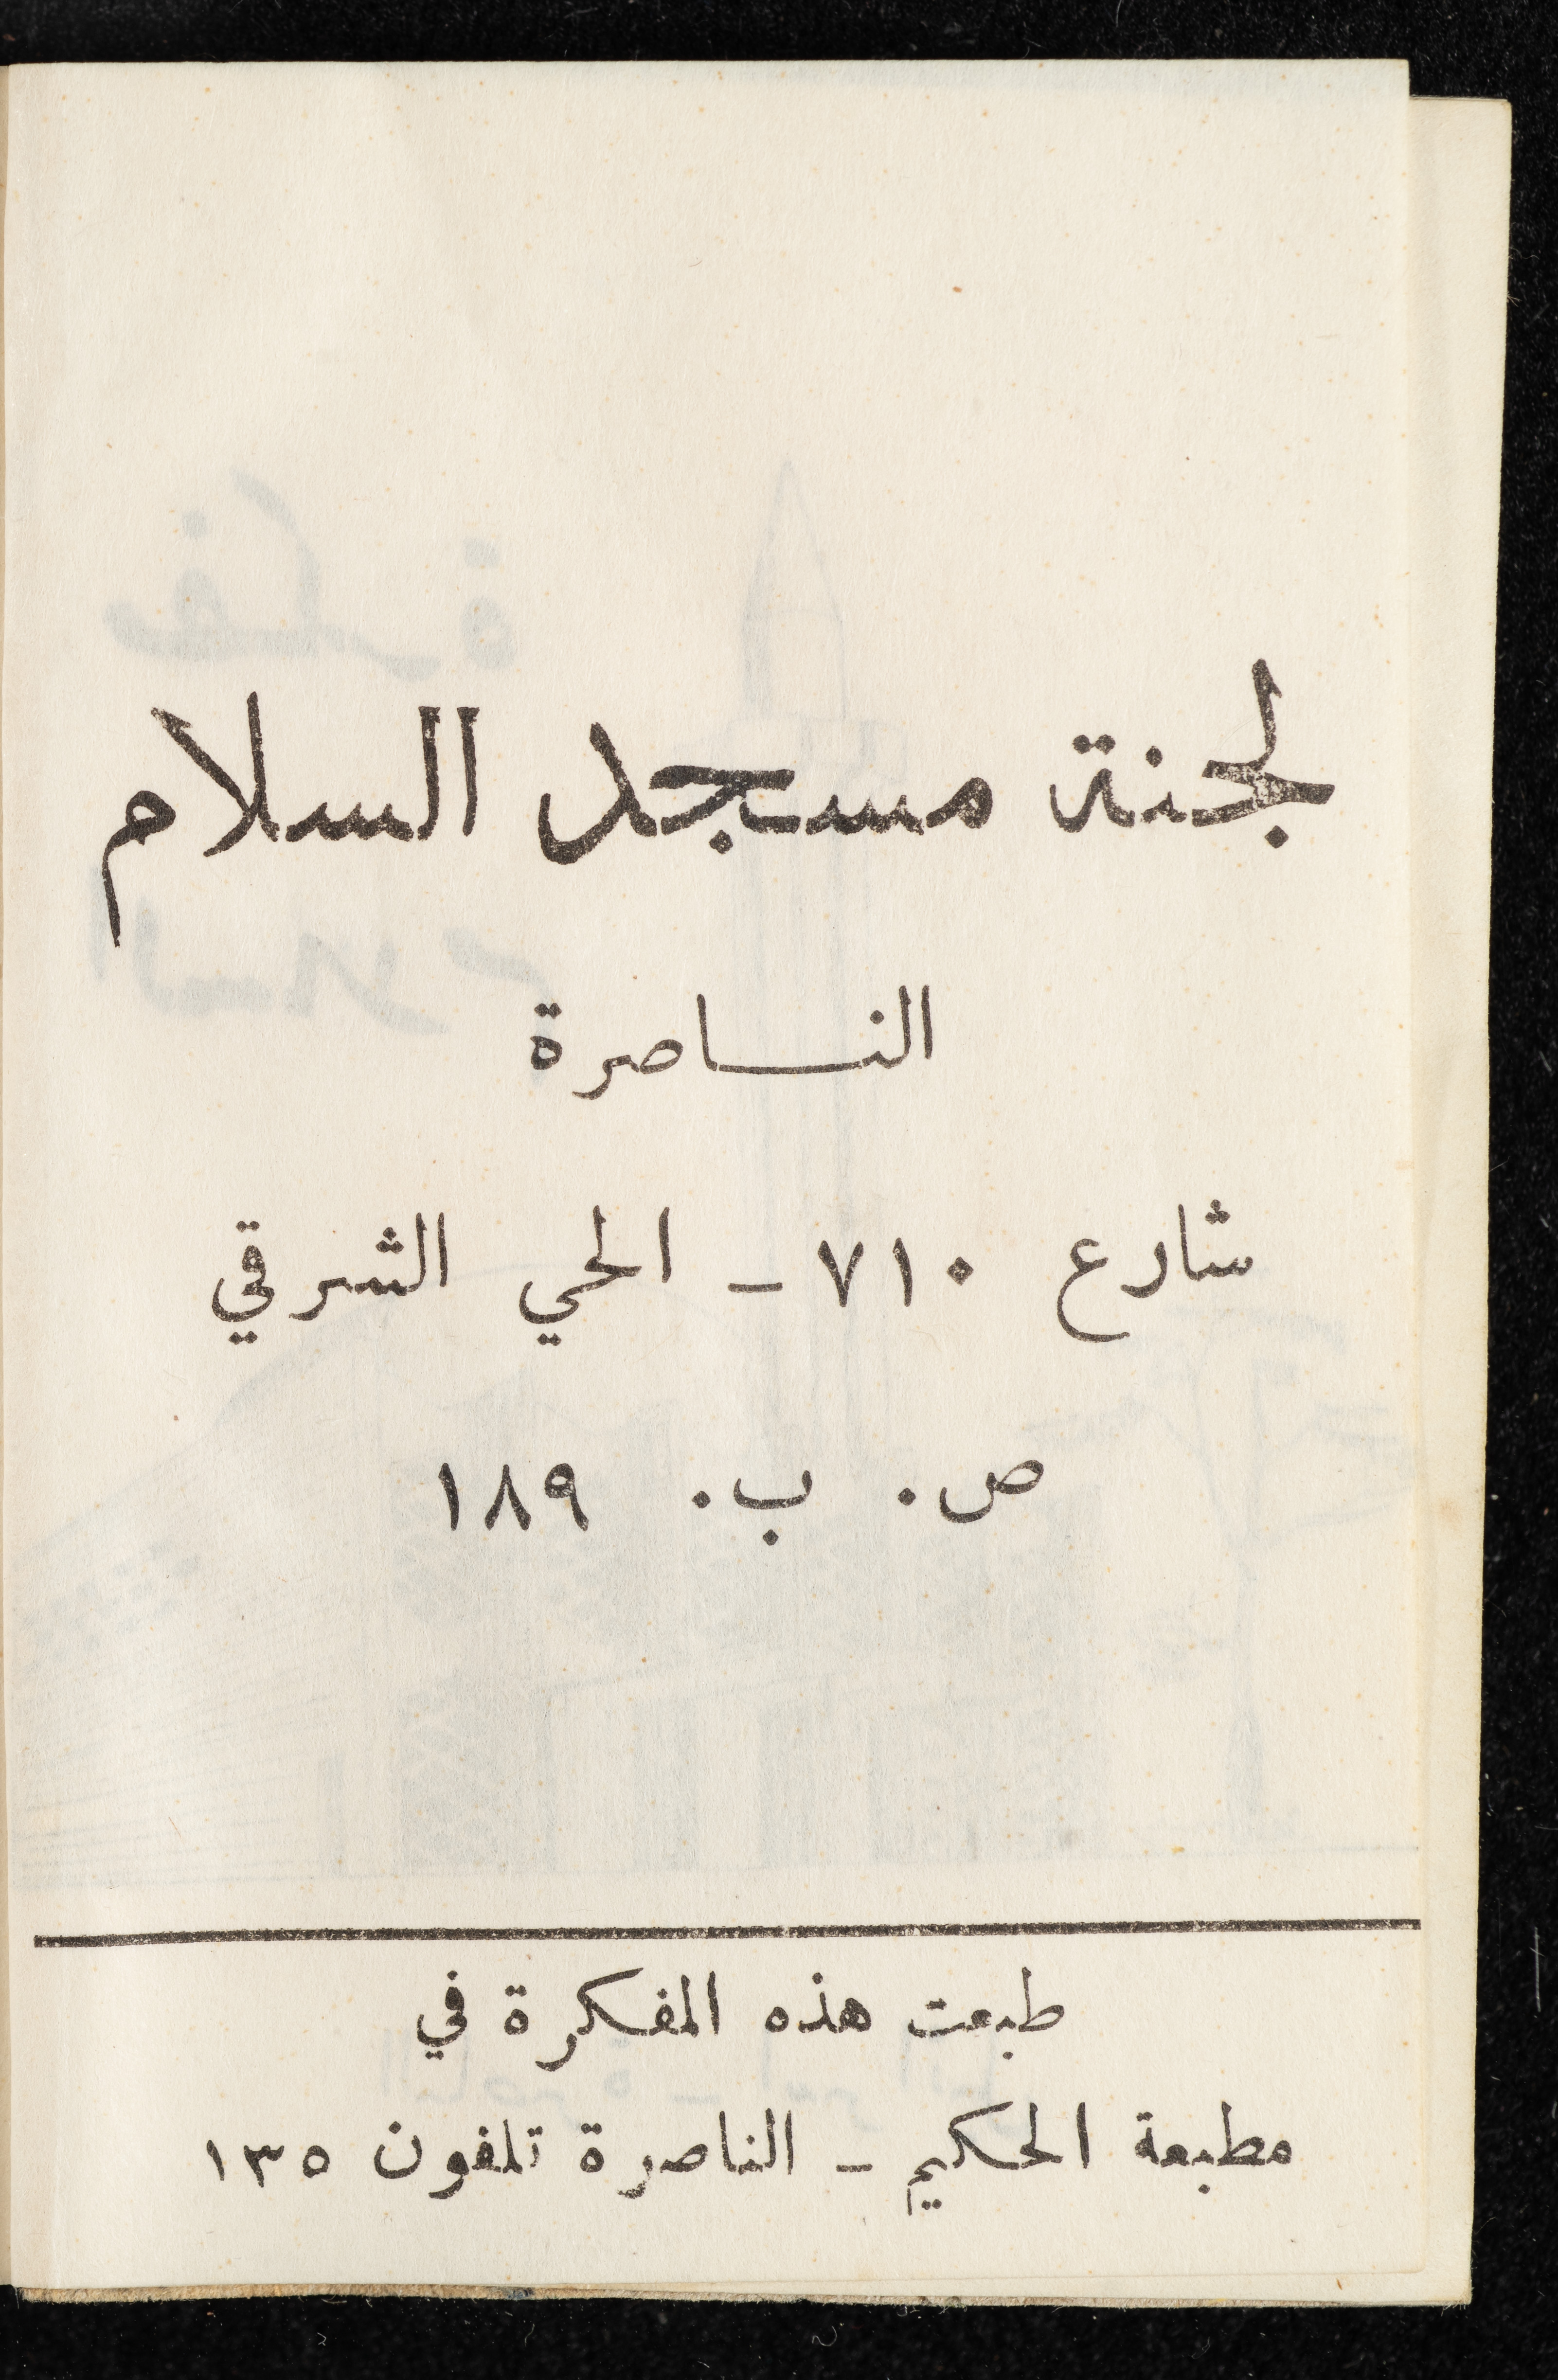 لجنة مسجد السلام
الناصرة
شارع ٧١٠ - الحي الشرقي
ص. ب. ١٨٩
طبعت هذه المفكرة في
مطبعة الحكيم - الناصرة تلفون ١٣٥